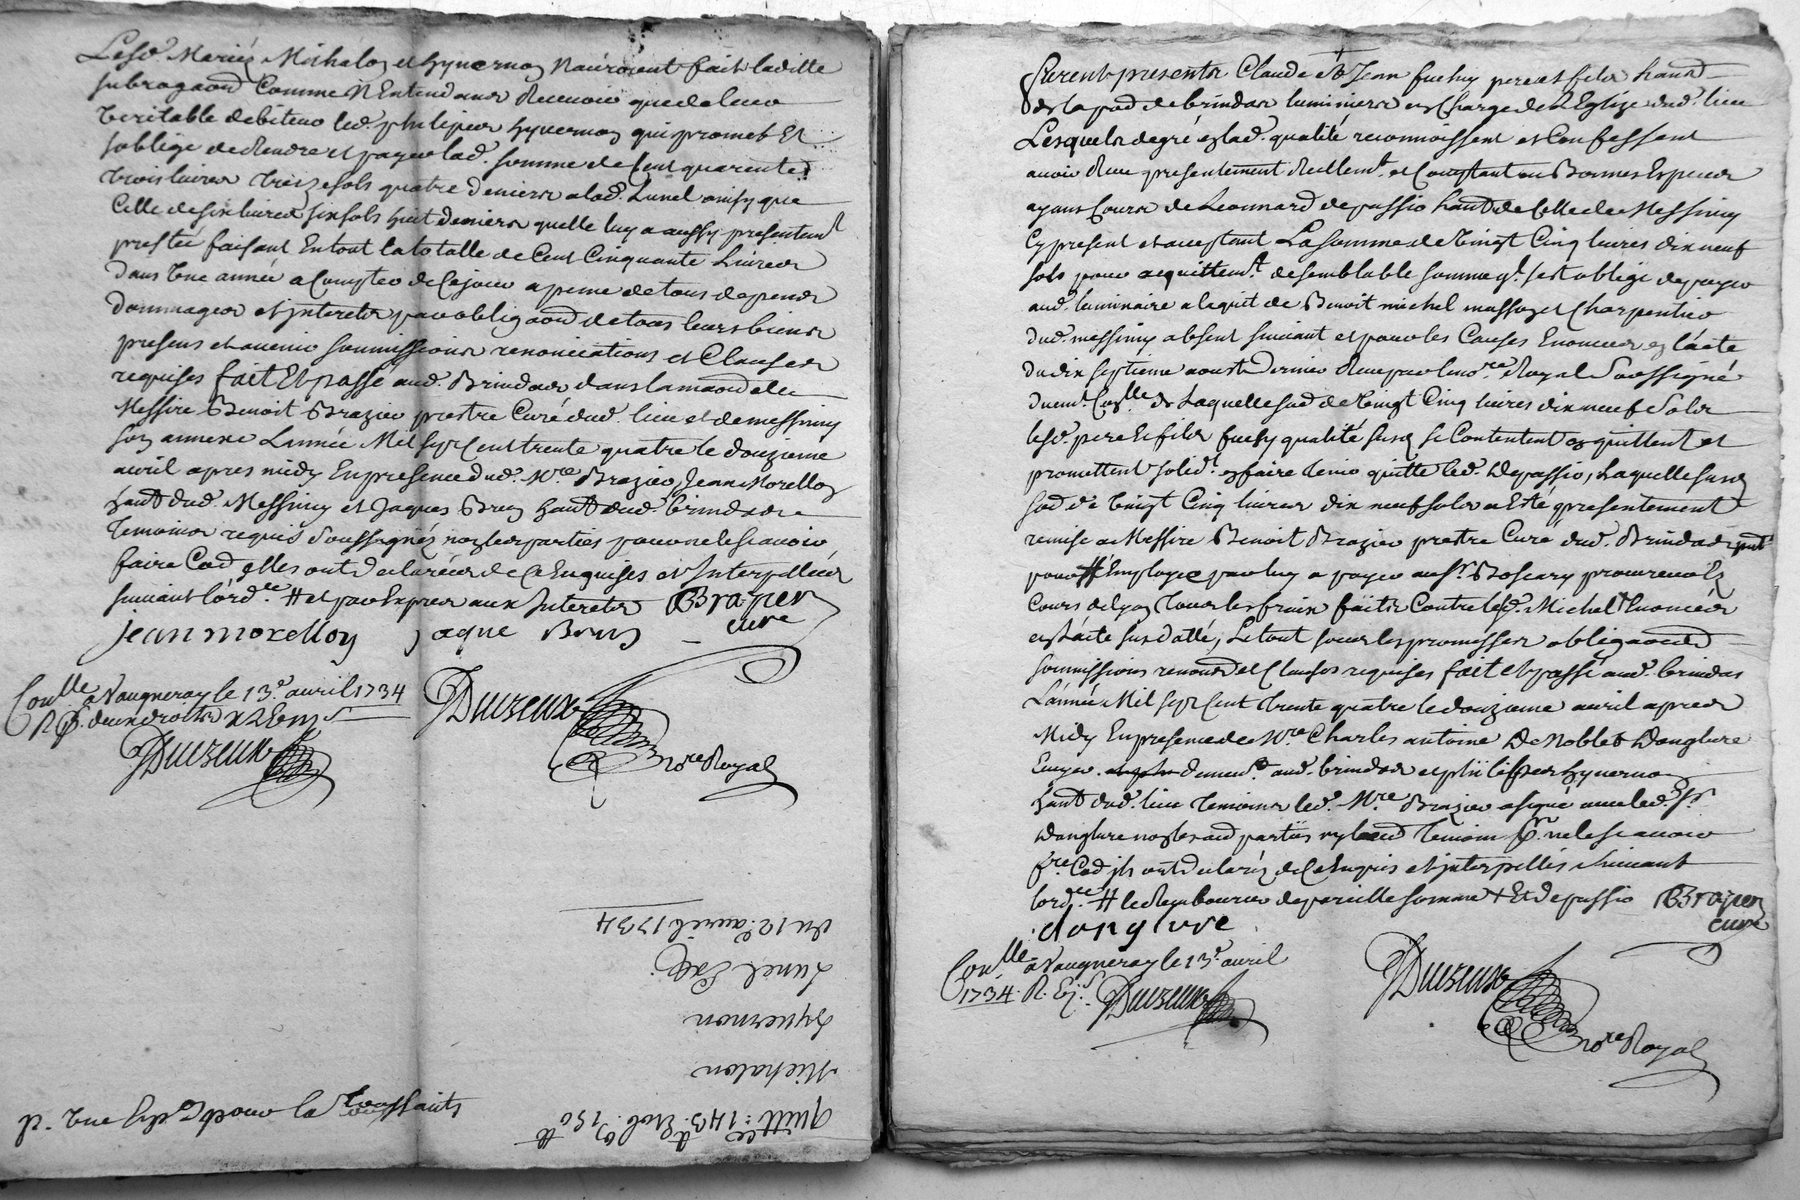 Lesd. Mariéz Michalon et hyvernon N'auroient fait laditte
subrogaõn Comme N'Entendans Recevoir que de leur
Veritable debiteur led. philipes hyvernon qui promet Et
s'oblige de Rendre et payer lad. somme de Cent quarente
trois livres treize sols quatre deniers alad. Lunel ainsy que
Celle de six livres six sols huit deniers quelle luy a aussy presentemt
prestée faisant En tout la totalle de Cent Cinquante Livres
dans Une année a Compter de Cejour a peine de tous depens
dommages et interets par obligaõn de tous leurs biens
presens et avenir soumissions renonciations et Clauses
requises fait Et passé aud. Brindas dans la maison de
Messire Benoit Brazier prestre Curé dud. lieu et de messimy
son annexe L'année Mil sept Cent trente quatre le douzieme
avril apres midy En presence dud. Mre Brazier, Jean Morellon
hant dud. Messimy et Jaques Brun hant dud. brindas
temoins requis Soussignéz non les parties pour ne le scavoir
faire Co͠e Elles ont declarées de Ce Enquises et Interpellées
suivant l'ordce # et par Exprès aux Interets BBrazier
curé
jean morellon jaque Brun
Conlle à Vaugneray le 13e avril 1734
R. deux droits
JDuvreux
JDuvreux
nore Royal
du 12e avril 1734
Lunel
hyvernon
Michalon
quittce 143 Et obon 150 tt
p. Une Expon pour la Toussaints
Furent presents Claude & Jean fuchy pere et fils hants
de la paroisse de brindas luminiers en Charge de L'Eglize dud. lieu
Lesquels de gré en lad. qualité reconnoissent et Confessent
avoir Receu presentement Reellemt et Comptant en Bonnes Especes
ayant Cours de Leonnard depassio hant de Celle de Messimy
Cy present et acceptant La somme de Vingt Cinq livres dix neuf
sols pour acquittemt de semblable somme ql. s'est obligé de payer
aud. luminaire a lequit de Benoit michel masson et Charpentier
dud. messimy absent suivant et pour les Causes Enoncées en l'acte
du dix septieme aoust dernier Receu par le nore Royal Soussigné
duemt Conllé de Laquelle somme de Vingt Cinq livres dix neuf Sols
lesd. pere Et fils fuchy qualité susd. se Contentent en quittent et
promettent solidt. en faire tenir quitte led. Depassio, Laquelle susd.
somme de Vingt Cinq livres dix neuf sols a Esté presentement
remise a Messire Benoit Brazier prestre Curé dud. Brindas pnt
pour # Employée par luy a payer au Sr Boscary procureur Ez
Cours de lyon tous les fraix faits Contre led. Michel Enoncées
en l'acte susdatté, Le tout sous les promesses obligaõns
soumissions renonõns et Clauses requises fait Et passé aud. brindas
L'année Mil sept Cent trente quatre le douzieme avril apres
Midy En presence de Mre Charles antoine De Noblet Danglure
Ecuyer demeurt aud. brindas et philippes hyvernon
hant dud. lieu temoins led. Mre Brazier a signé avec led. Sr
Danglure non lesd. parties ny led. temoin pr ne le scavoir
fre Co͠e ils ont declarés de Ce Enquis et interpellés Suivant
lordce # le Rembourser de pareille somme + Et depassio BBrazier
curé
danglure
Conlle à Vaugneray le 13e avril
1734. R.
JDuvreux
JDuvreux
nore Royal